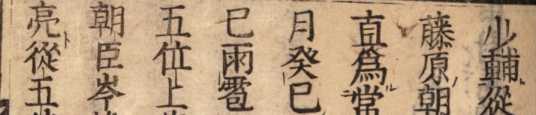 少輔從
藤原朝
直爲常
月癸巳
巳雨雹
五位上
朝臣岑
亮從五